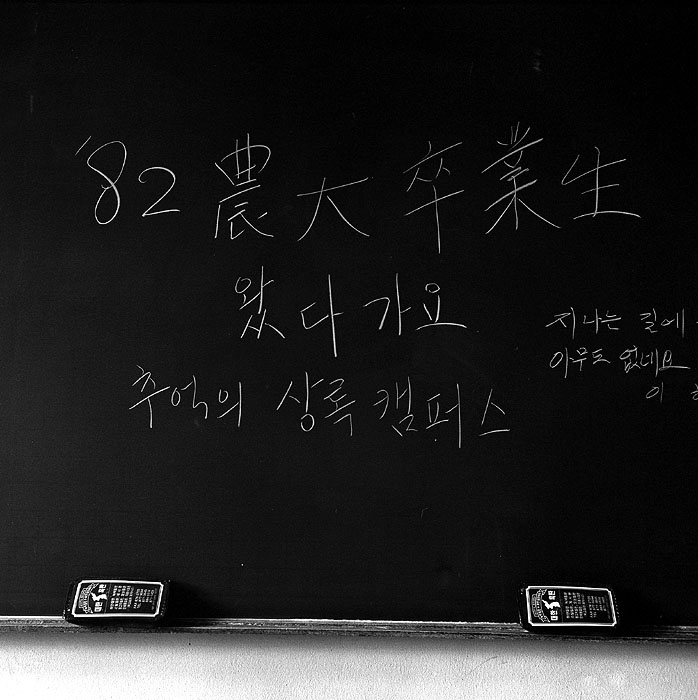 '82 農大 卒業生
왔다 가요
추억의 상록 캠퍼스
지나는 길에
아무도 없네요
이